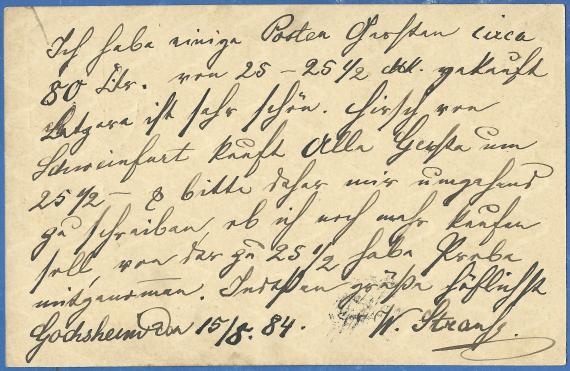 Ich habe einige Posten Gersten circa
80 Ztr. von 25 – 25 1/2 Mk. gekauft
Letztere ist sehr schön. Hirsch von
Schweinfurt kauft alle Gerste um
25 1/2 – & bitte daher mir umgehend
zu schreiben, ob ich noch mehr kaufen
soll, von der zu 25 1/2 habe Probe
mitgenommen. Indessen grüße höflichst
Gochsheim den 15/8. 84. W.